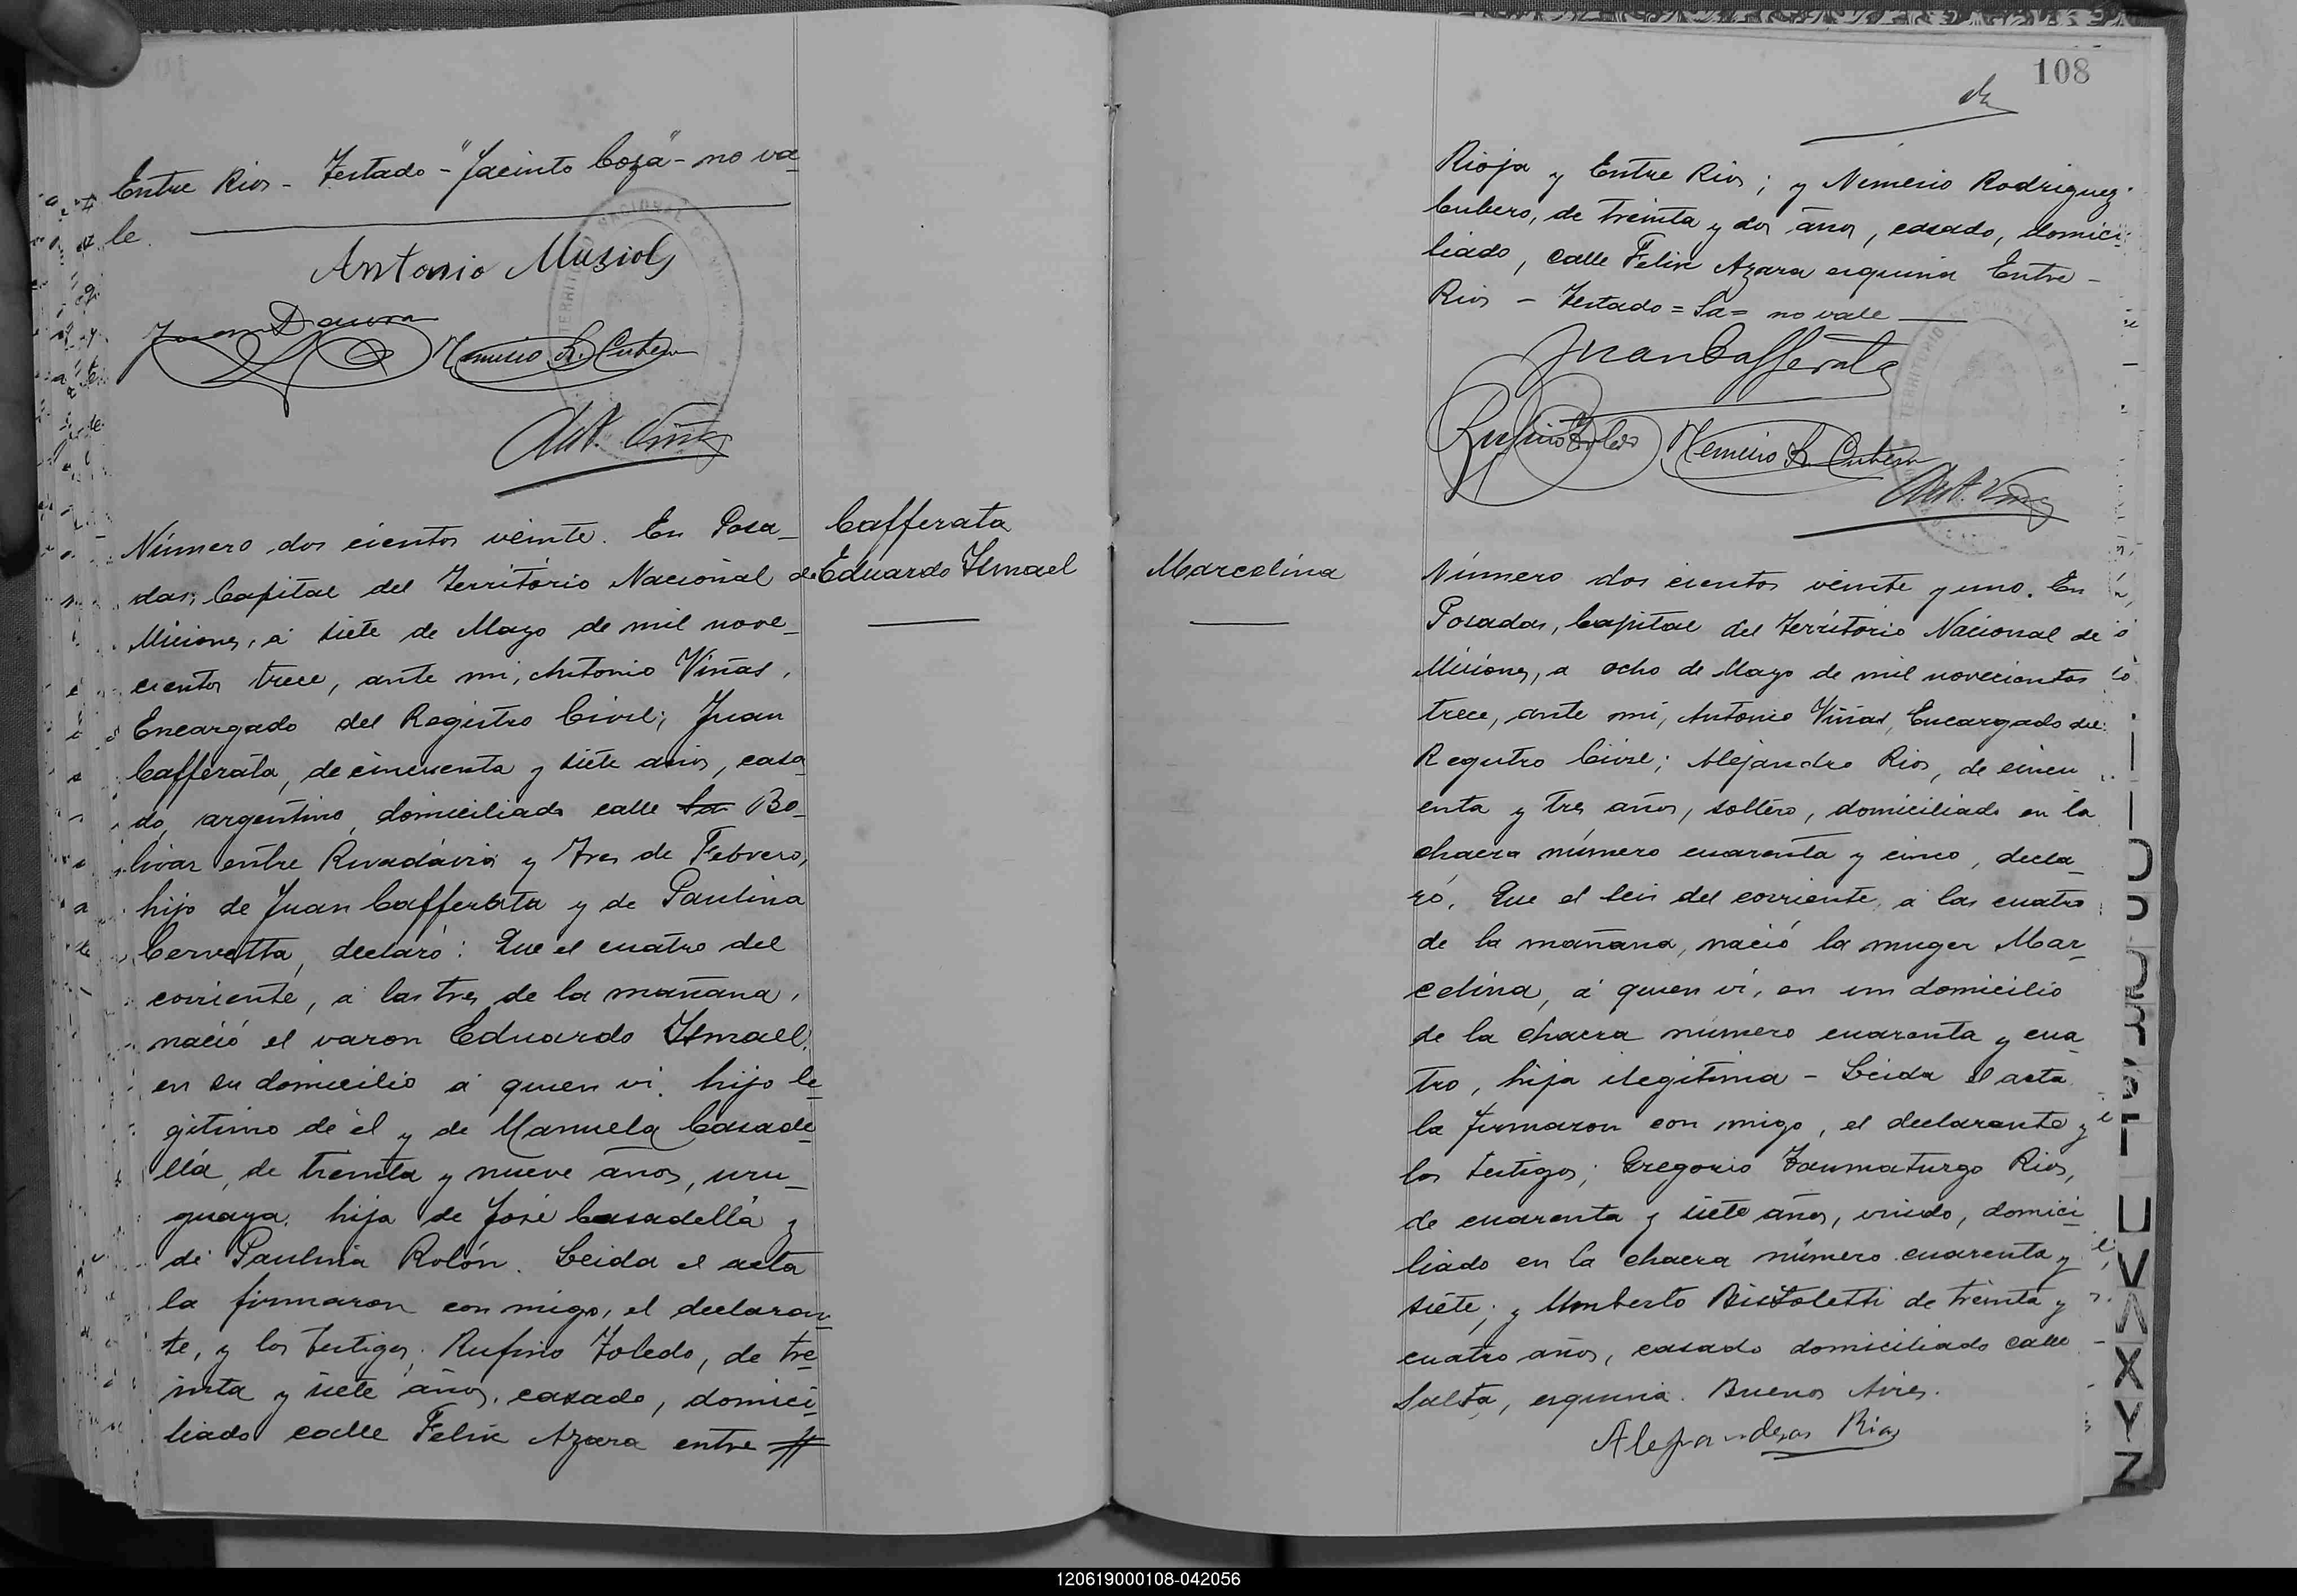 Entre Rios - Testado - "Jacinto Coza" - no va-
le.
Antonio Musiol
Juan Daura
Nemesio R. Cubero
Ant. Viñas
Número dos cientos veinte. En Posa-
das, Capital del Territorio Nacional de
Misiones, á siete de Mayo de mil nove-
cientos trece, ante mi, Antonio Viñas,
Encargado del Registro Civil; Juan
Cafferata, de cincuenta y siete años, casa-
do, argentino, domiciliado calle La Bo-
livar entre Rivadavia y Tres de Febrero,
hijo de Juan Cafferata y de Paulina
Cervetta, declaró: Que el cuatro del
corriente, á las tres de la mañana,
nació el varon Eduardo Ismael,
en su domicilio á quien vi. hijo le-
gitimo de él y de Manuela Casade-
llá, de treinta y nueve años, uru-
guaya, hija de José Casadellá y
de Paulina Rolón. Leida el acta
la firmaron con migo, el declaran-
te, y los testigos; Rufino Toledo, de tre-
inta y siete años, casado, domici-
liado calle Felix Azara entre
Cafferata
Eduardo Ismael
108
Rioja y Entre Rios; y Nemesio Rodriguez
Cubero, de treinta y dos años, casado, domici-
liado, calle Felix Azara esquina Entre-
Rios - Testado = La = no vale
Juan Cafferata
Rufino Toledo
Nemesio R. Cubero
Ant. Viñas
Marcelina
Número dos cientos veinte y uno. En
Posadas, Capital del Territorio Nacional de
Misiones, a ocho de Mayo de mil novecientos
trece, ante mi, Antonio Viñas, Encargado del
Registro Civil; Alejandro Rios, de cincu
enta y tres años, soltero, domiciliado en la
chacra número cuarenta y cinco, decla-
ró. Que el seis del corriente, á las cuatro
de la mañana, nació la muger Mar-
celina, á quien vi, en un domicilio
de la chacra número cuarenta y cua-
tro, hija ilegitima - Leida el acta
la firmaron con migo, el declarante y
los testigos; Gregorio Taumaturgo Rios,
de cuarenta y siete años, viudo, domici-
liado en la chacra número cuarenta y
siete; y Umberto Bistoletti de treinta y
cuatro años, casado domiciliado calle
Salta, esquina. Buenos Aires.
Alejandro Rios
U
V
X
Y
Z
120619000108-042056